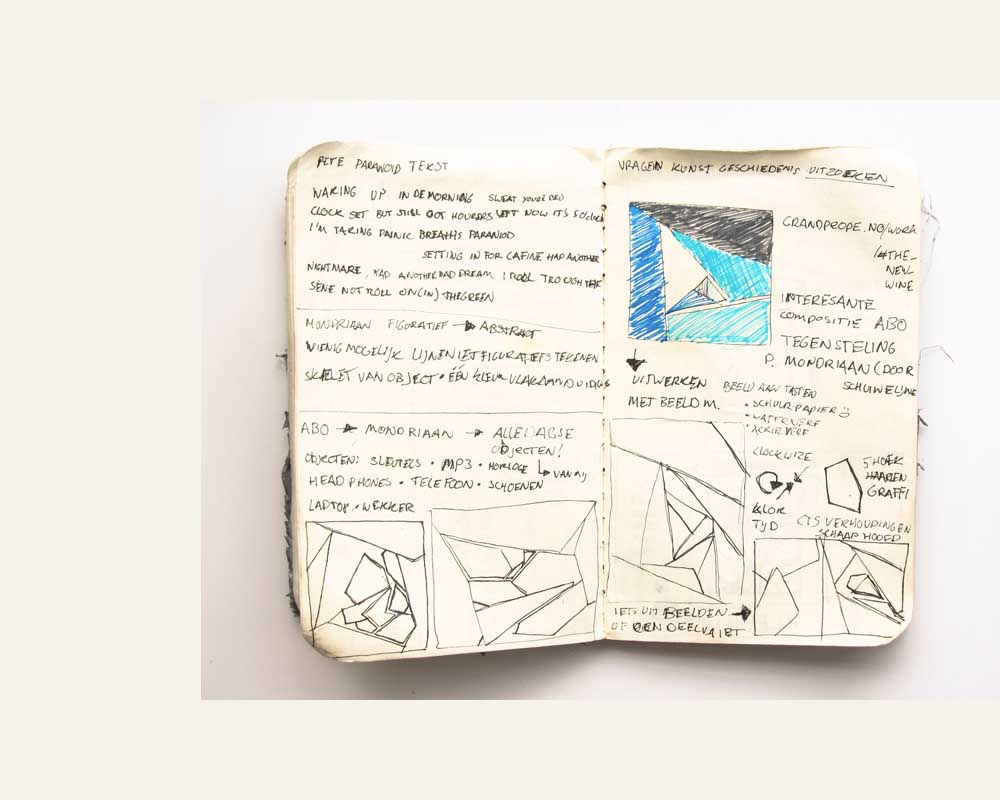 PETE PARANOID TEKST
WAKING UP IN DE MORNING SWEAT
CLOCK SET BUT STILL GOT LEFT NOW IT'S 5 O'CLOCK
I'M TAKING PANNIC BREATHS PARANIOD
SETTING IN FOR CAFINE HAD ANOTHER
NIGHTMARE, HAD ANOTHER BAD DREAM I
SENE NOT ROLL ON(IN) THE GREEN
MONDRIAAN FIGURATIEF → ABSTRACT
WEINIG MOGELIJK LIJNEN NIET FIGURATIEFS TEKENEN
SKELET VAN OBJECT • ÉÉN KLEUR
ABO → MONDRIAAN → ALLEDAGSE
OBJECTEN!
OBJECTEN: SLEUTELS • MP3 • HORLOGE VAN MIJ
HEADPHONES • TELEFOON • SCHOENEN
LAPTOP • WEKKER
VRAGEN KUNST GESCHIEDENIS UITZOEKEN
GRANDPEOPE.NO/WORK
/#THE-
NEW
WINE
INTERESANTE
COMPOSITIE ABO
TEGENSTELING
P. MONDRIAAN (DOOR
UITWERKEN
MET BEELD M.
BEELD AAN TASTEN
• SCHUURPAPIER
• WATERVERF
• ACRILVERF
CLOCKWIZE
KLOK
TYD
5 HOEK
HAARLEM
GRAFFI
CTS VERHOUDINGEN
SCHAAP HOOFD
IETS UIT BEELDEN →
OF EEN DEEL VA IET